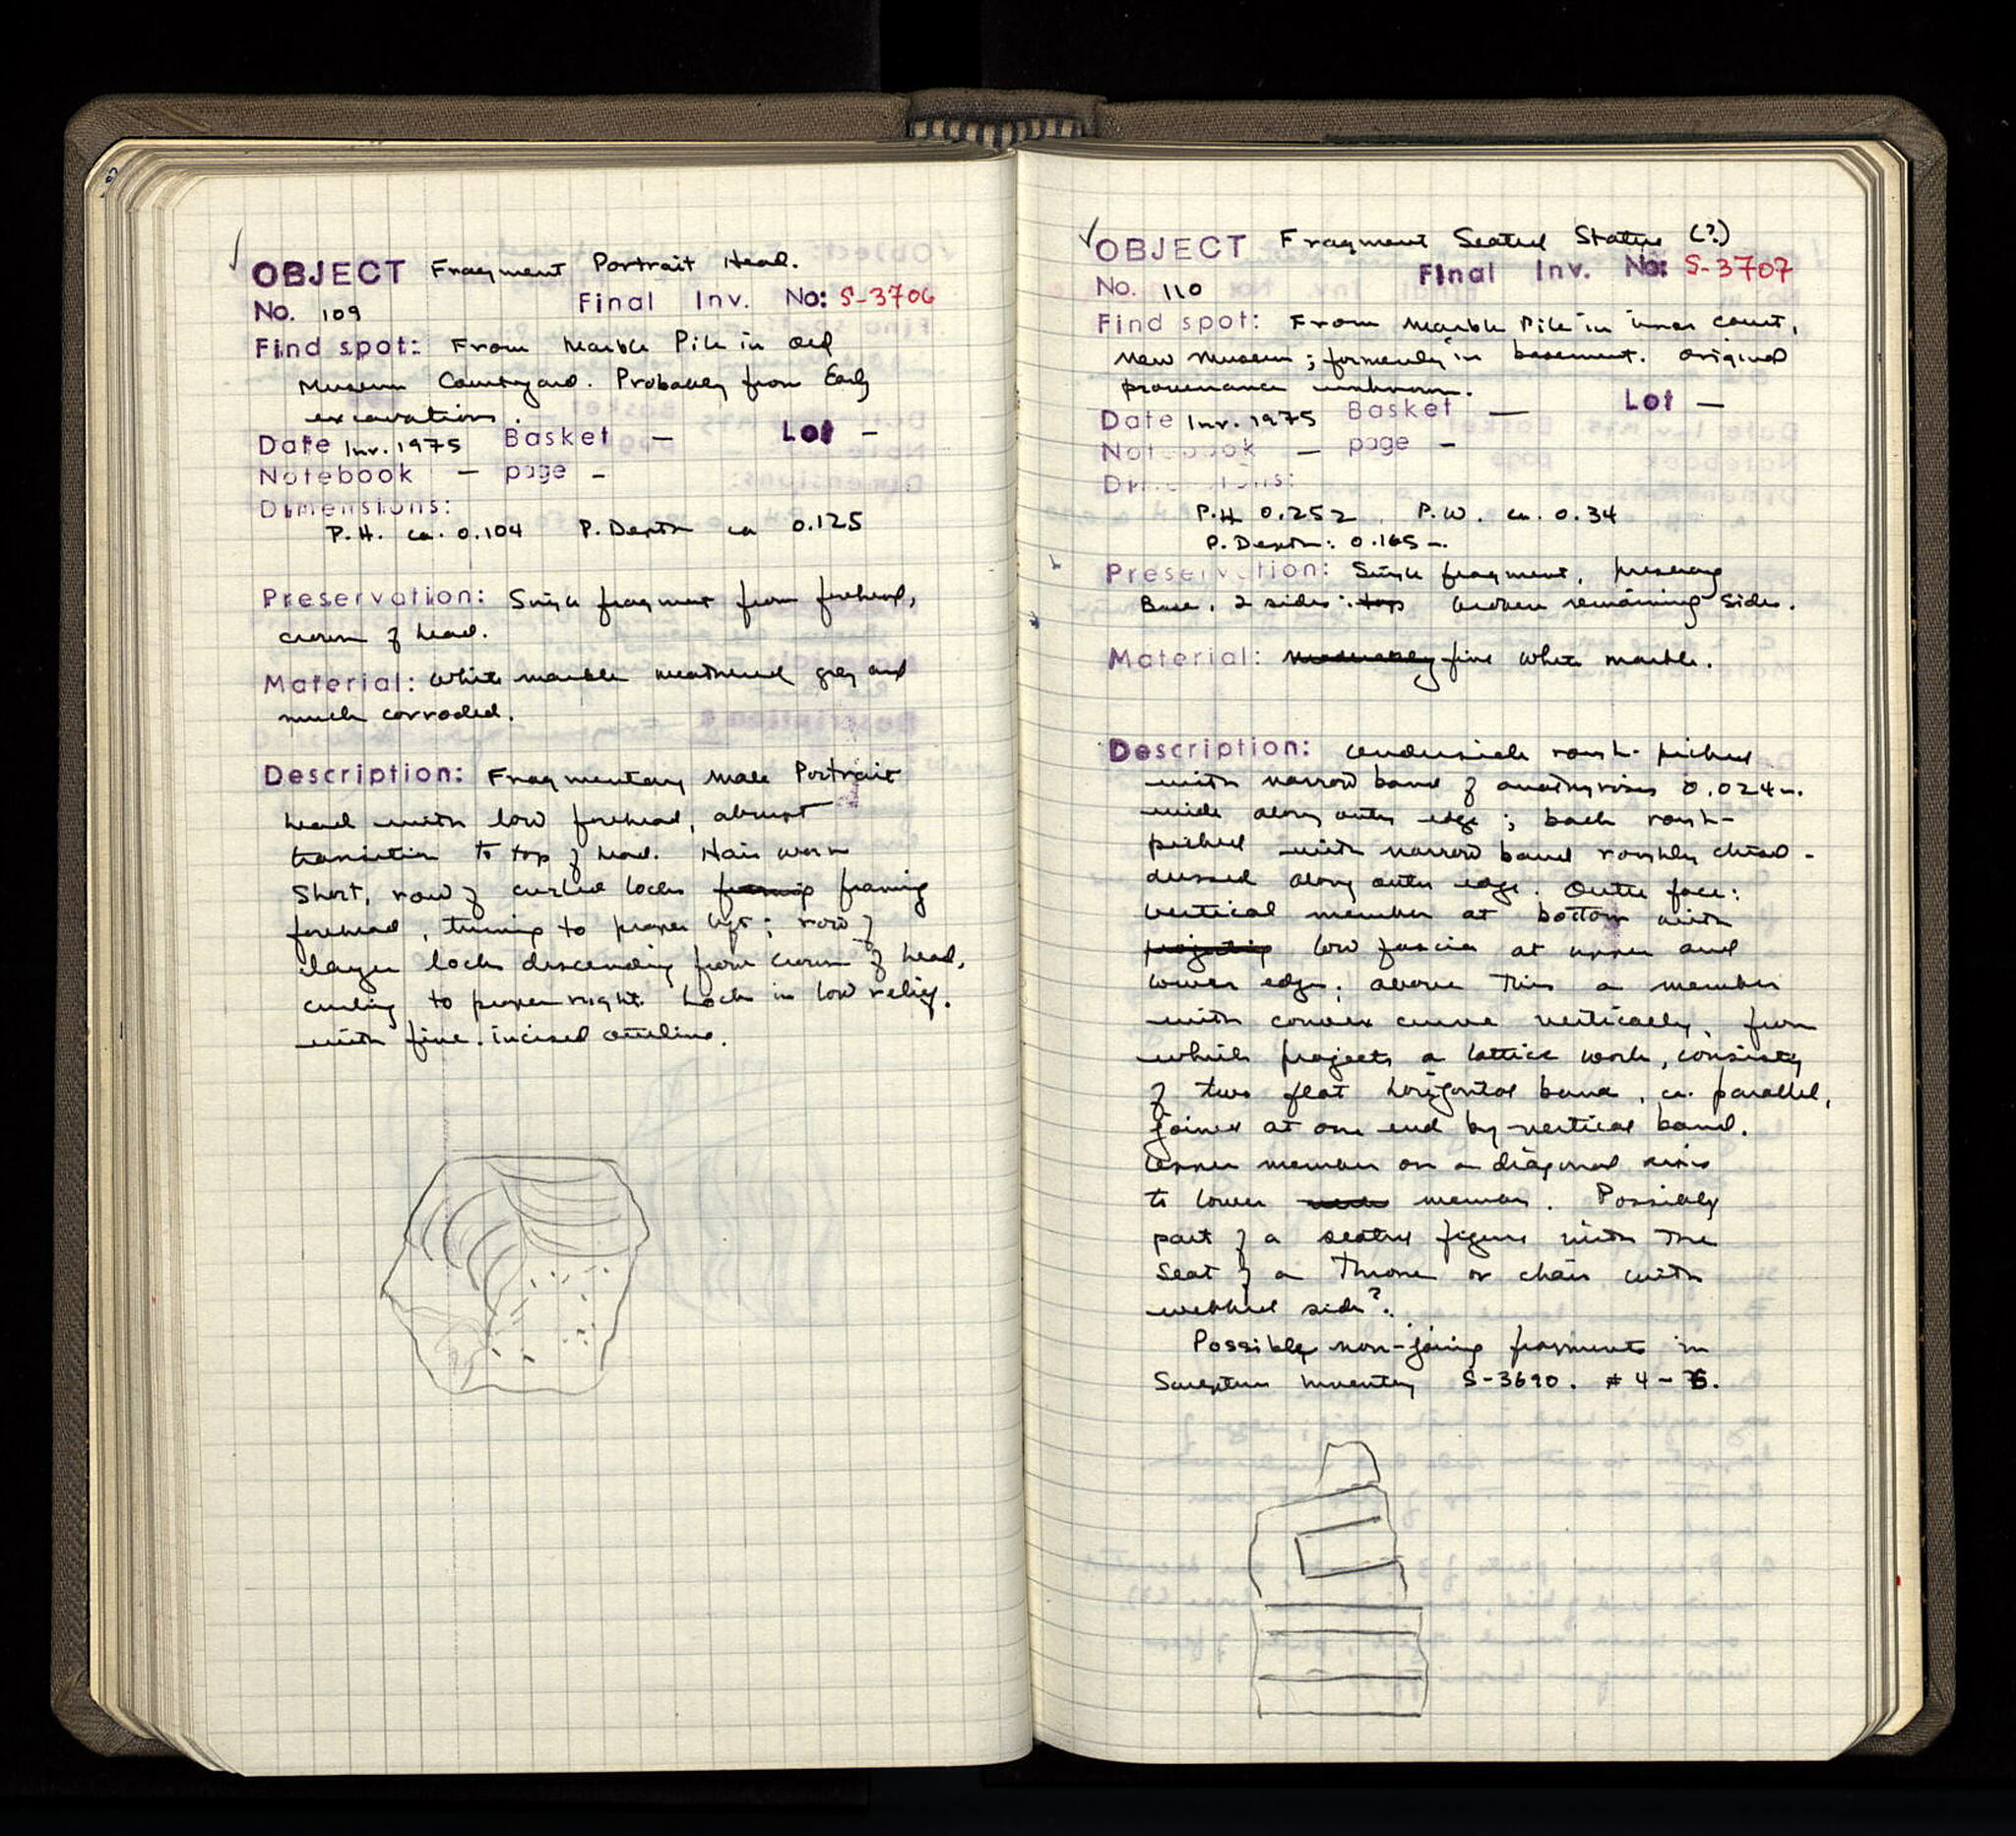 OBJECT Fragment Portrait Head.
No. 109 Final Inv. No: S-3706
Find spot: From Marble Pile in Old
Museum Courtyard. Probably from Early
excavations.
Date Inv. 1975 Basket — Lot —
Notebook — page —
Dimensions:
P.H. ca. 0.104 P. Depth ca 0.125
Preservation: Single fragment from forehead,
crown of head.
Material: White marble weathered grey and
much corroded.
Description: Fragmentary male Portrait
head with low forehead, abrupt
transition to top of head. Hair worn
short, row of curled locks framing
forehead, turning to proper left; row of
larger locks descending from crown of head,
curling to proper right. Locks in low relief.
with fine incised outline.
OBJECT Fragment Seated Statue (?)
No. 110 Final Inv. No: S-3707
Find spot: From Marble Pile in inner court,
New Museum; formerly in basement. Original
provenance unknown.
Date Inv. 1975 Basket — Lot —
Notebook — page —
Dimensions:
P.H. 0.252 P.W. ca. 0.34
P. Depth: 0.165 m.
Preservation: Single fragment, preserving
Base, 2 sides: top broken remaining sides.
Material: moderately fine white marble.
Description: Underside rough-picked
with narrow band of anathyrosis 0.024 m.
wide along outer edge; back rough-
picked with narrow band roughly chisel-
dressed along outer edge. Outer face:
vertical member at bottom with
projecting low fascia at upper and
lower edge; above this a member
with convex curve vertically, from
which projects a lattice work, consisting
of two flat horizontal bands, ca. parallel,
joined at one end by vertical band.
Upper member on a diagonal axis
to lower member. Possibly
part of a seated figure with the
seat of a throne or chair with
webbed side?.
Possibly non-joining fragments in
Sculpture Inventory S-3690. #4-6.